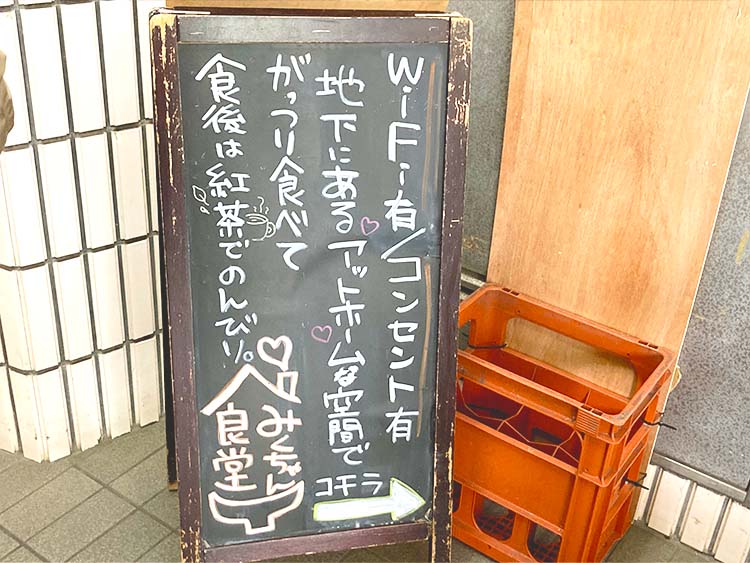 WiFi有/コンセント有
地下にあるアットホームな空間で
がっつり食べて
食後は紅茶でのんびり。
みくちゃん
食堂
コチラ